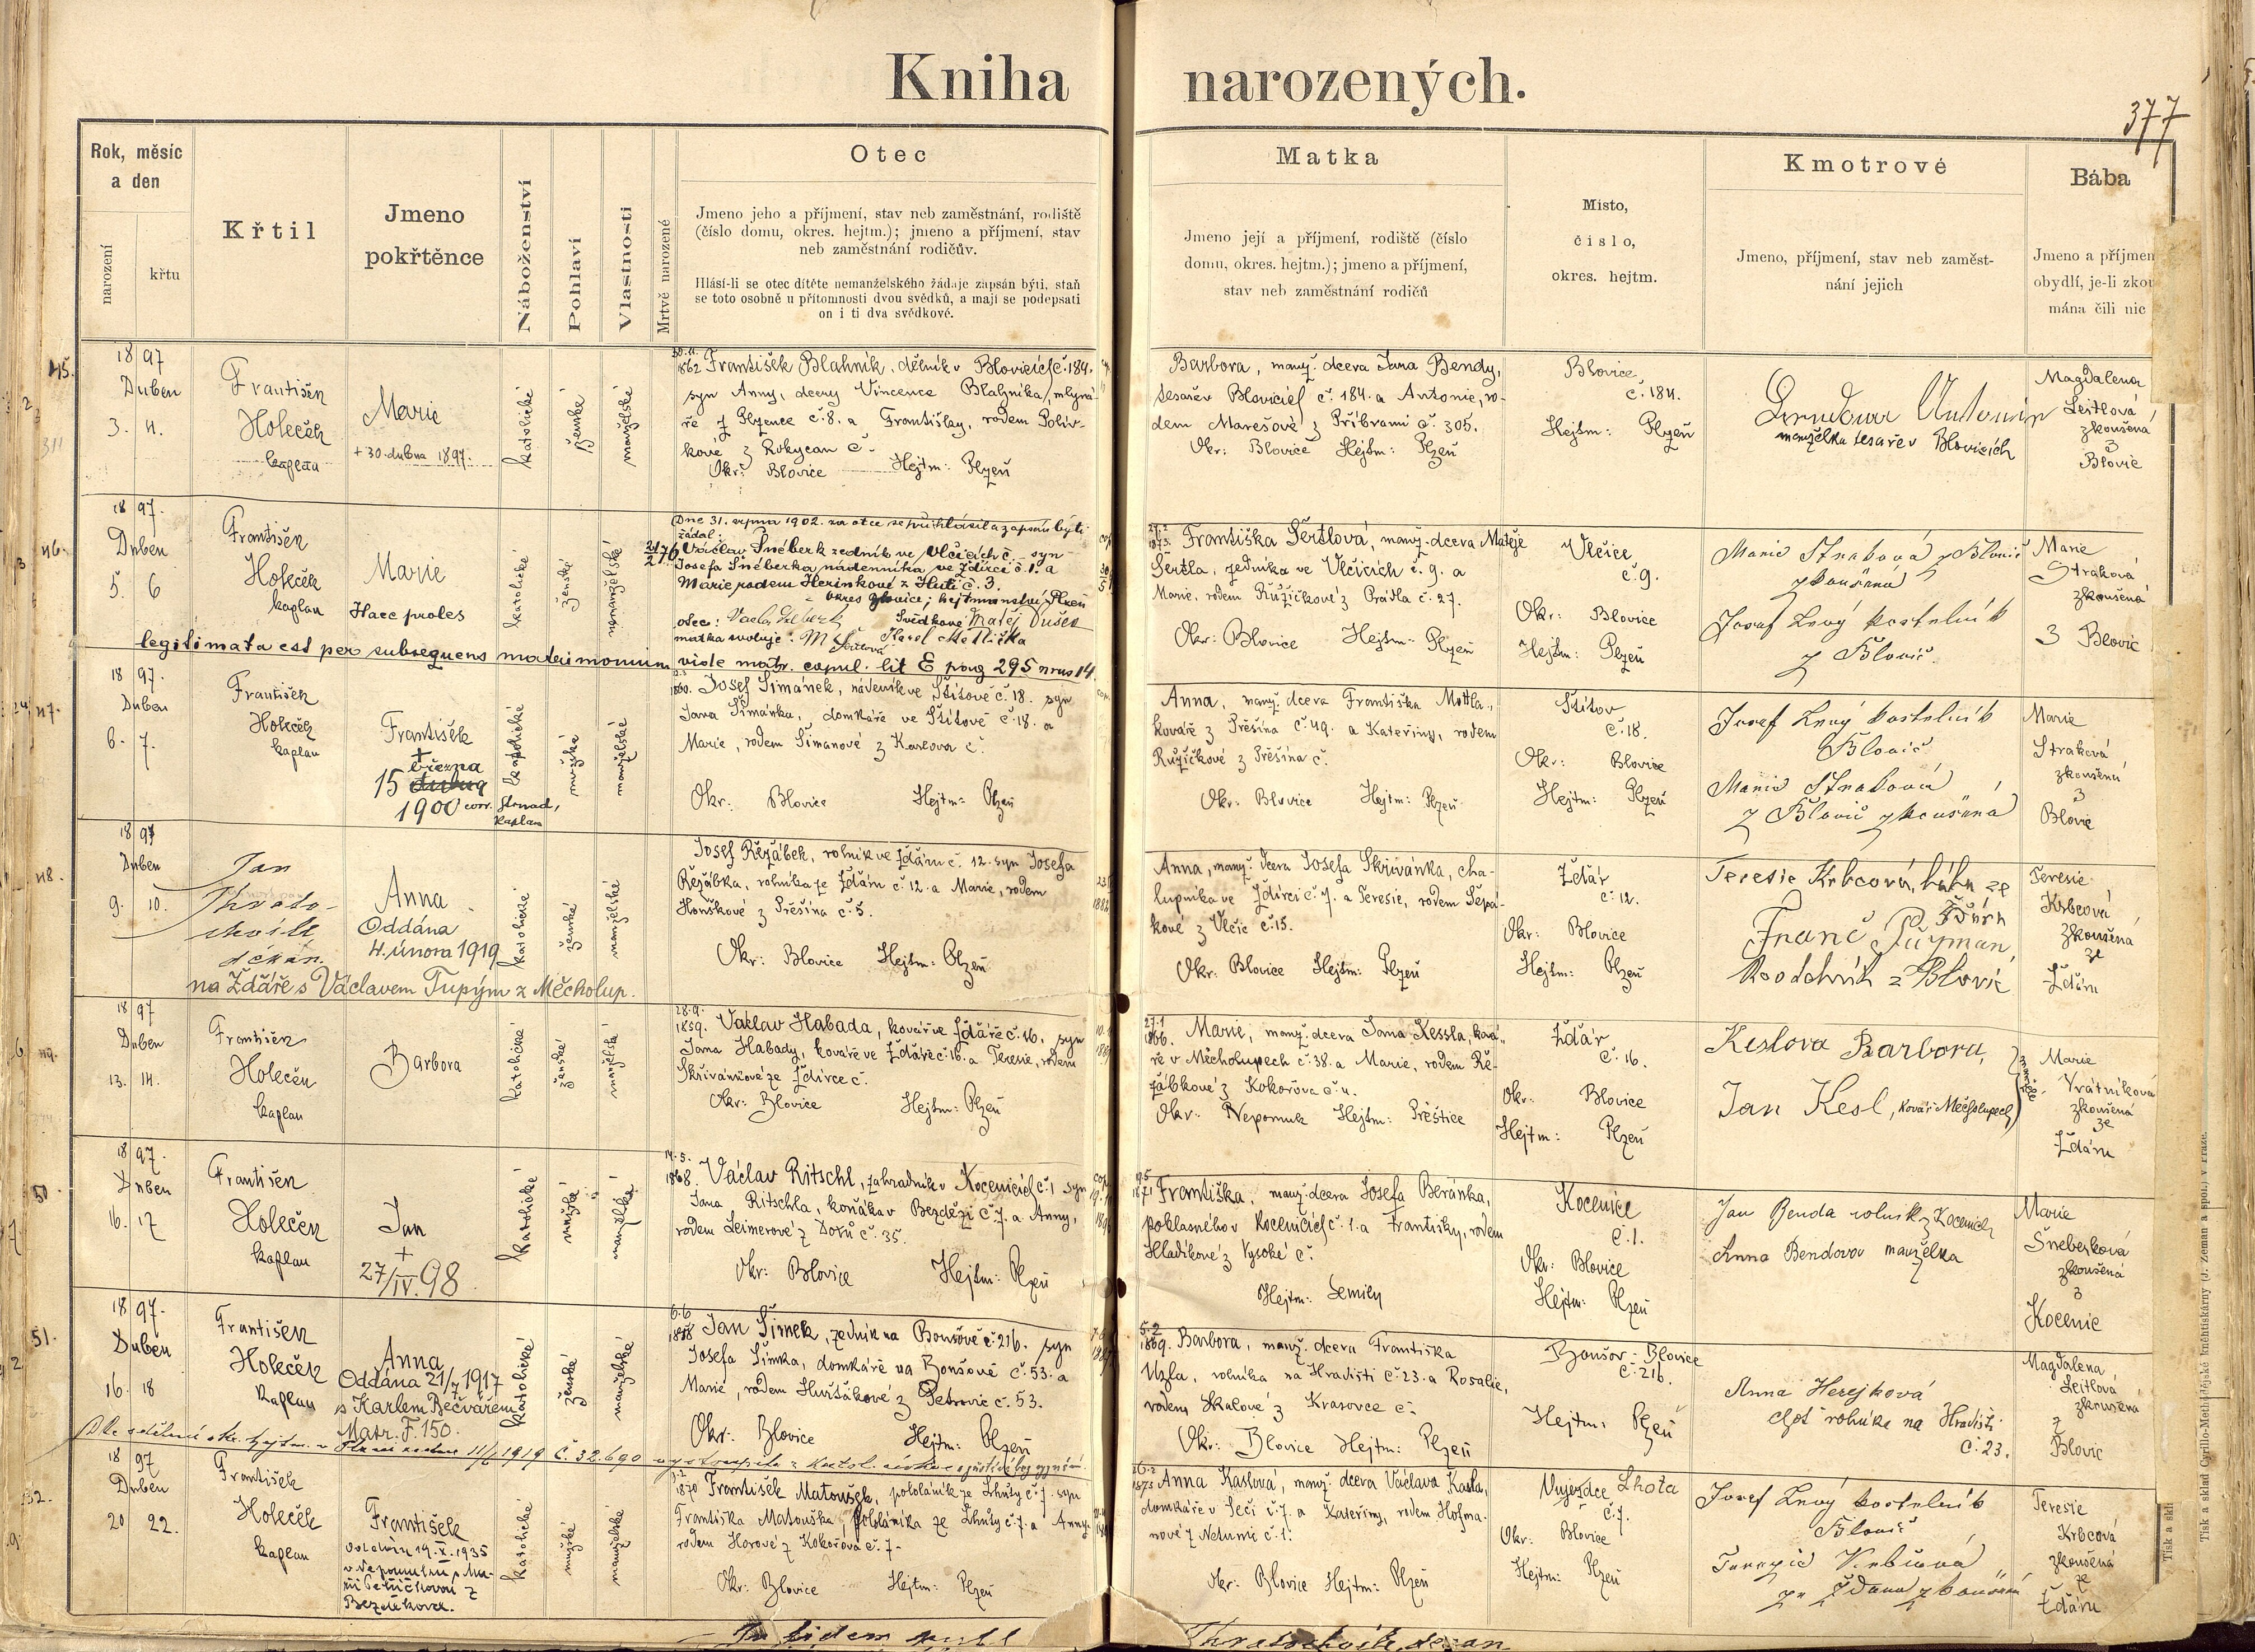 Kniha narozených.
377
Rok, měsíc
a den
narození
křtu
Křtil
Jmeno
pokřtěnce
Náboženství
Pohlaví
Vlastnosti
Mrtvě narozené
Otec
Jmeno jeho a příjmení, stav neb zaměstnání, rodiště
(číslo domu, okres. hejtm.); jmeno a příjmení, stav
neb zaměstnání rodičův.
Hlásí-li se otec dítěte nemanželského žádaje zapsán býti, staň
se toto osobně u přítomnosti dvou svědků, a mají se podepsati
on i ti dva svědkové.
Matka
Jmeno její a příjmení, rodiště (číslo
domu, okres. hejtm.); jmeno a příjmení,
stav neb zaměstnání rodičů
Místo,
číslo,
okres. hejtm.
Kmotrové
Jmeno, příjmení, stav neb zaměst-
nání jejich
Bába
Jmeno a příjmen
obydlí, je-li zkou
mána čili nic
45.
18 97
Duben
3. 4.
František
Holeček
kaplan
Marie
+ 30. dubna 1897.
katolické
ženské
manželské
1862 František Blahník, dělník v Blovicích č. 184.
syn Anny, dcery Vincence Blahníka, mlyná-
ře z Plzence č. 8. a Františky, rodem Polív-
kové z Rokycan č.
Okr: Blovice Hejtm: Plzeň
Barbora, manž. dcera Jana Bendy,
tesaře v Blovicích č. 184. a Antonie, ro-
dem Marešové z Příbrami č. 305.
Okr: Blovice Hejtm: Plzeň
Blovice
č. 184.
Hejtm: Plzeň
manželka tesaře v Blovicích
Magdalena
Leitlová
zkoušená
z
Blovic
46.
18 97.
Duben
5. 6
František
Holeček
kaplan
Marie
Haec proles
katolické
ženské
nemanželské
Dne 31. srpna 1902. za otce se přihlásil a zapsán býti
žádal:
Václav Šnéberk zedník ve Vlčicích č. syn
Josefa Šnéberka nádenníka ve Ždírci č. 1. a
Marie rodem Herinkové z Hutí č. 3.
okres Blovice; hejtmanství Plzeň
otec: Svědkové Matěj Dušek
matka svoluje: Karel
legitimata est per subsequens matrimonium vide matr. copul. lit E pag 295 nrus 14.
1873. Františka Šertlová, manž. dcera Matěje
Šertla, zedníka ve Vlčicích č. 9. a
Marie, rodem Růžičkové z Prádla č. 27.
Okr: Blovice Hejtm: Plzeň
Vlčice
č. 9.
Okr: Blovice
Hejtm: Plzeň
Marie Straková z Blovic
zkoušená
Josef Levý kostelník
z Blovic.
Marie
Straková
zkoušená
z Blovic
47.
18 97.
Duben
6. 7.
František
Holeček
kaplan
František
+
března
15
1900 corr.
kaplan
katolické
mužské
manželské
1860. Josef Šimánek, nádeník ve Štítově č. 18. syn
Jana Šimánka, domkáře ve Štítově č. 18. a
Marie, rodem Šimanové z Karlova č.
Okr: Blovice Hejtm: Plzeň
Anna, manž. dcera Františka Mottla,
kováře z Přešína č. 49. a Kateřiny, rodem
Růžičkové z Přešína č.
Okr: Blovice Hejtm: Plzeň
Štítov
č. 18.
Okr: Blovice
Hejtm: Plzeň
Josef Levý kostelník
Blovic
Marie Straková
z Blovic zkoušená
Marie
Straková
zkoušená
z
Blovic
48.
18 97
Duben
9. 10.
Jan
děkan.
Anna
Oddána
4. února 1919
na Ždáře s Václavem Tupým z Měcholup.
katolické
ženské
manželské
Josef Řežábek, rolník ve Ždáru č. 12. syn Josefa
Řežábka, rolníka ze Ždáru č. 12. a Marie, rodem
Houškové z Přešína č. 5.
Okr: Blovice Hejtm: Plzeň
Anna, manž. dcera Josefa Skřivánka, cha-
lupníka ve Ždírci č. 7. a Teresie, rodem Sepá-
kové z Vlčic č. 15.
Okr: Blovice Hejtm: Plzeň
Ždár
č. 12.
Okr: Blovice
Hejtm: Plzeň
Teresie Krbcová, bába ze
Ždáru
Franc
z Blovic
Teresie
Krbcová
zkoušená
ze
Ždáru
49.
18 97
Duben
13. 14.
František
Holeček
kaplan
Barbora
katolické
ženské
manželské
28.9.
1859. Václav Habada, kovář ve Ždáře č. 16. syn
Jana Habady, kováře ve Ždáře č. 16. a Teresie, rodem
Skřivánkové ze Ždírce č.
Okr: Blovice Hejtm: Plzeň
27.1
1866. Marie, manž. dcera Jana Kessla, ková-
ře v Měcholupech č. 38. a Marie, rodem Ře-
žábkové z Kokořova č. 4.
Okr: Nepomuk Hejtm: Přeštice
Ždár
č. 16.
Okr: Blovice
Hejtm: Plzeň
Keslova Barbora,
Jan Kesl, kovář Měcholupech
Marie
Vrátníková
zkoušená
ze
Ždáru
50.
18 97.
Duben
16. 17
František
Holeček
kaplan
Jan
+
27/IV. 98
katolické
mužské
manželské
14.5.
1868. Václav Ritschl, zahradník v Kocenicích č. 1 syn
Jana Ritschla, koňáka v Bezdězi č. 7. a Anny,
rodem Leimerové z Doků č. 35.
Okr: Blovice Hejtm: Plzeň
1871 Františka, manž. dcera Josefa Beránka,
poklasného v Kocenicích č. 1. a Františky, rodem
Hladíkové z Vysoké č.
Hejtm: Semily
Kocenice
č. 1.
Okr: Blovice
Hejtm: Plzeň
Jan Benda rolník z Kocenich
Anna Bendova manželka
Marie
Šneberková
zkoušená
z
Kocenic
51.
18 97.
Duben
16. 18
František
Holeček
kaplan
Anna
Oddána 21/7 1917
s Karlem Bečvářem
Matr. F. 150.
katolické
ženské
manželské
6.6
1858 Jan Šimek, zedník na Boušově č. 216. syn
Josefa Šimka, domkáře na Boušově č. 53. a
Marie, rodem Huršákové z Petrovic č. 53.
Okr: Blovice Hejtm: Plzeň
5.2
1869. Barbora, manž. dcera Františka
Uzla, rolníka na Hradišti č. 23. a Rosalie,
rodem Skalové z Krasovce č.
Okr: Blovice Hejtm: Plzeň
Boušov - Blovice
č. 216.
Hejtm: Plzeň
Anna Herejková
choť rolníka na Hradišti
č. 23.
Magdalena
Leitlová
zkoušená
z
Blovic
Dle sdělení okr. hejtm. v Plzni ze dne 11/6 1919 č. 32.690 vystoupila z katol. církve
52.
18 97
Duben
20 22.
František
Holeček
kaplan
František
19. X. 1935
katolické
mužské
manželské
1870 František Matoušek, pololáník ze Lhoty č. 7. syn
Františka Matouška, pololáníka ze Lhoty č. 7. a Anny
rodem Horové z Kokořova č. 7.
Okr: Blovice Hejtm: Plzeň
26.2
1873 Anna Kaslová, manž. dcera Václava Kasla,
domkáře v Seči č. 7. a Kateřiny, rodem Hofma-
nové z Netunic č. 1.
Okr: Blovice Hejtm: Plzeň
Vujezdce Lhota
č. 7.
Okr: Blovice
Hejtm: Plzeň
Josef Levý kostelník
Blovic
Terezie Krbcová
ze Ždaru zkoušená
Teresie
Krbcová
zkoušená
ze
Ždáru
Tisk a sklad Cyrillo-Methodějské knihtiskárny (J. Zeman a spol.) v Praze.
Tisk a skl